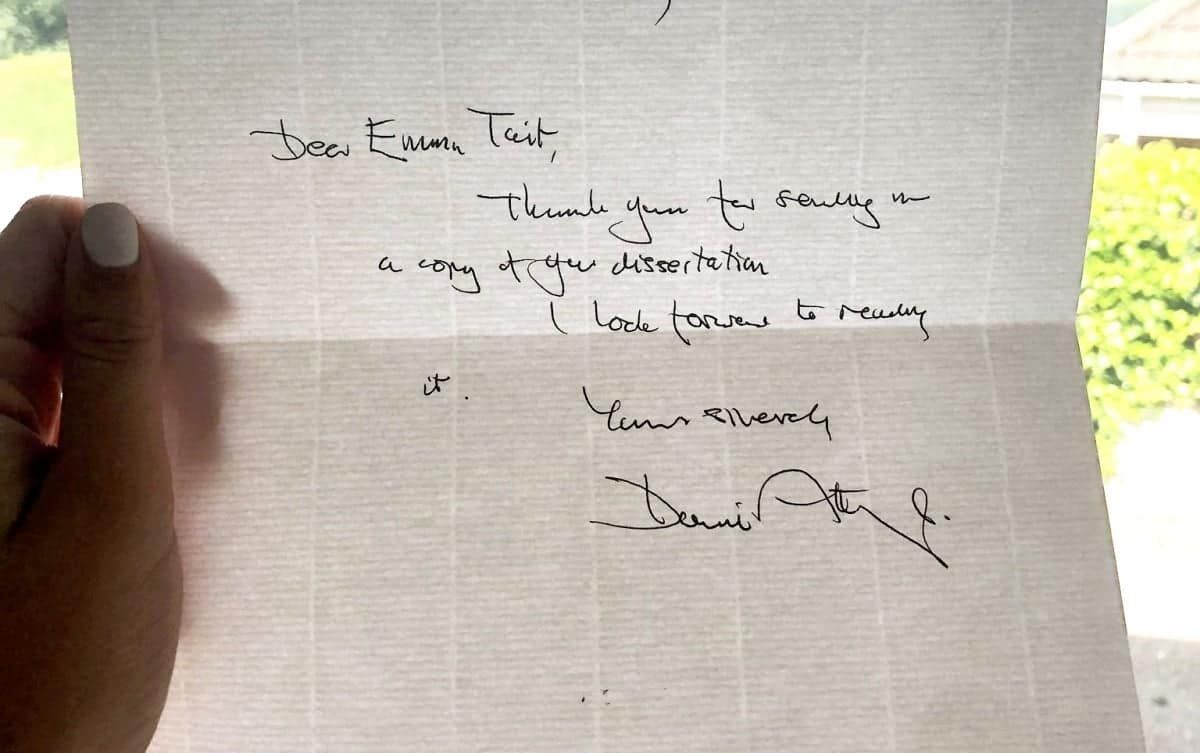 Dear Emma Tait,
Thank you for sending me
a copy of your dissertation
I look forward to reading
it.
Yours sincerely